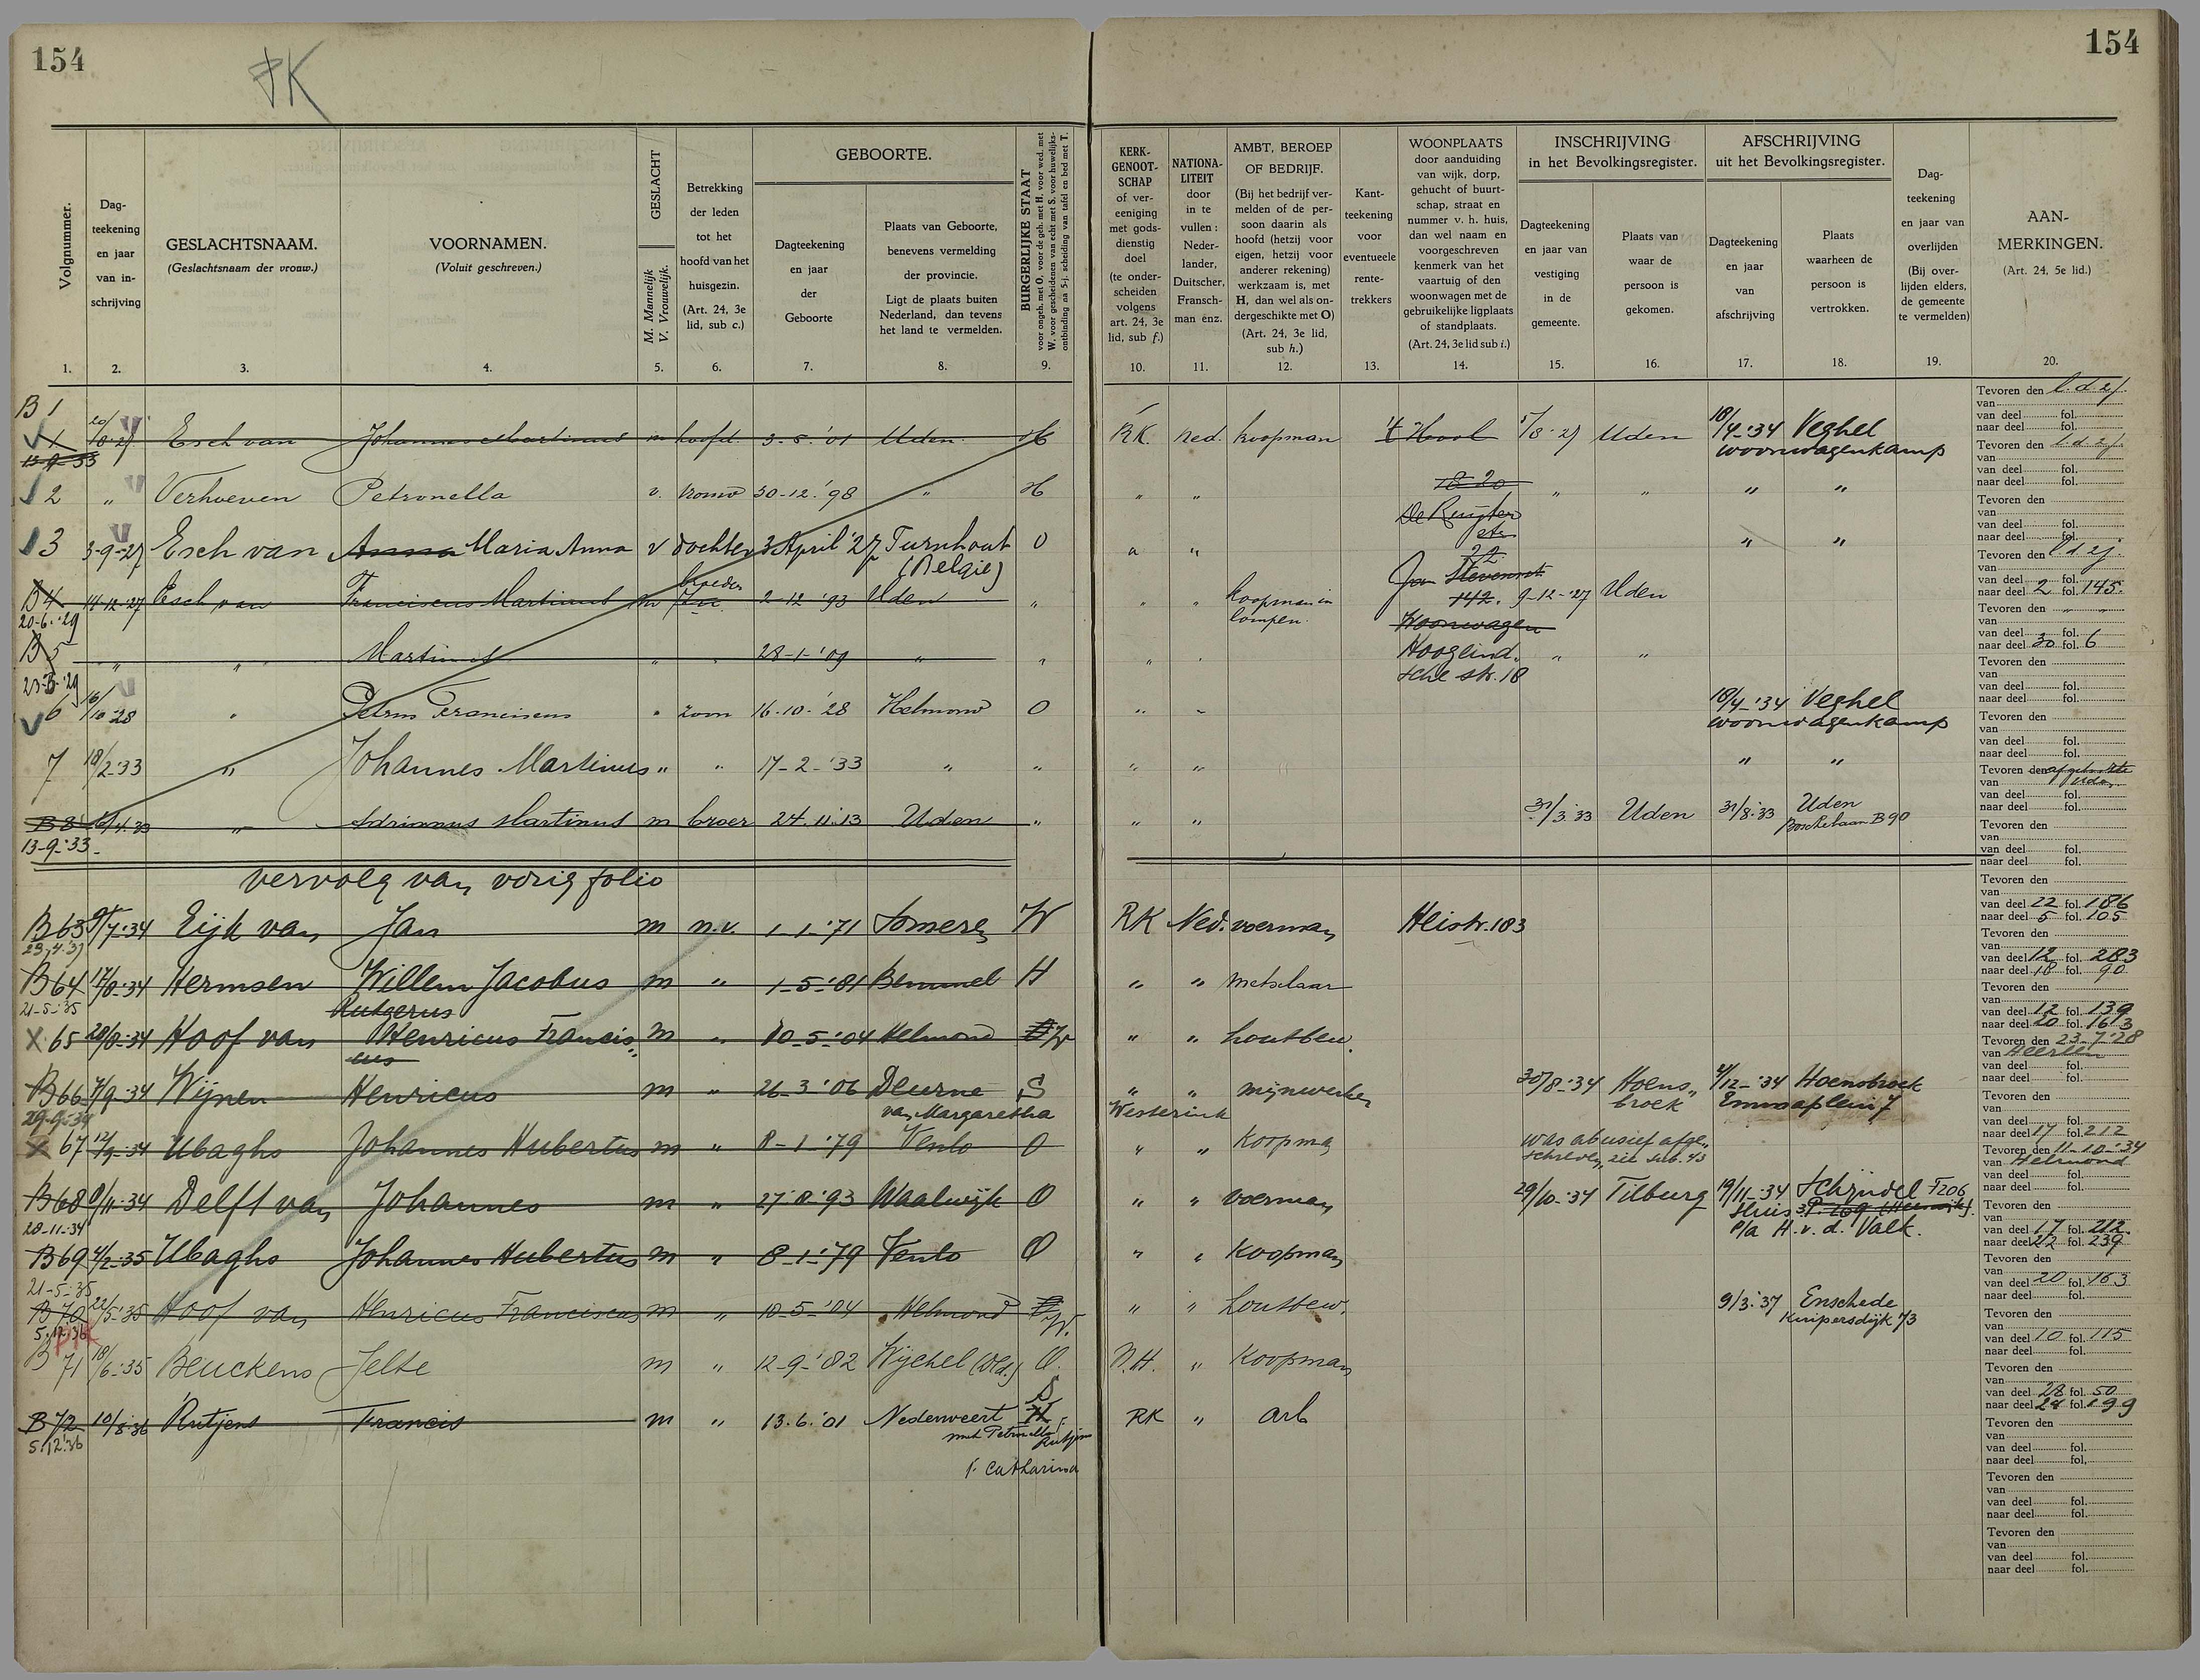 154
PK
154
Volgnummer.
Dag-
teekening
en jaar
van in-
schrijving
GESLACHTSNAAM.
(Geslachtsnaam der vrouw.)
VOORNAMEN.
(Voluit geschreven.)
GESLACHT
M. Mannelijk
V. Vrouwelijk.
Betrekking
der leden
tot het
hoofd van het
huisgezin.
(Art. 24, 3e
lid, sub c.)
GEBOORTE.
Dagteekening
en jaar
der
Geboorte
Plaats van Geboorte,
benevens vermelding
der provincie.
Ligt de plaats buiten
Nederland, dan tevens
het land te vermelden.
BURGERLIJKE STAAT
voor ongeh. met O. voor de geh. met H. voor wed. met
W. voor gescheidenen van echt met S. voor huwelijks-
ontbinding na 5-j. scheiding van tafel en bed met T.
KERK-
GENOOT-
SCHAP
of ver-
eeniging
met gods-
dienstig
doel
(te onder-
scheiden
volgens
art. 24, 3e
lid, sub f.)
NATIONA-
LITEIT
door
in te
vullen:
Neder-
lander,
Duitscher,
Fransch-
man enz.
AMBT, BEROEP
OF BEDRIJF.
(Bij het bedrijf ver-
melden of de per-
soon daarin als
hoofd (hetzij voor
eigen, hetzij voor
anderer rekening)
werkzaam is, met
H, dan wel als on-
dergeschikte met O)
(Art. 24, 3e lid,
sub h.)
Kant-
teekening
voor
eventueele
rente-
trekkers
WOONPLAATS
door aanduiding
van wijk, dorp,
gehucht of buurt-
schap, straat en
nummer v. h. huis,
dan wel naam en
voorgeschreven
kenmerk van het
vaartuig of den
woonwagen met de
gebruikelijke ligplaats
of standplaats.
(Art. 24, 3e lid sub i.)
INSCHRIJVING
in het Bevolkingsregister.
Dagteekening
en jaar van
vestiging
in de
gemeente.
Plaats van
waar de
persoon is
gekomen.
AFSCHRIJVING
uit het Bevolkingsregister.
Dagteekening
en jaar
van
afschrijving
Plaats
waarheen de
persoon is
vertrokken.
Dag-
teekening
en jaar van
overlijden
(Bij over-
lijden elders,
de gemeente
te vermelden)
AAN-
MERKINGEN.
(Art. 24, 5e lid.)
1. 2. 3. 4. 5. 6. 7. 8. 9. 10. 11. 12. 13. 14. 15. 16. 17. 18. 19. 20.
B 1
Esch van Johannes Martinus m hoofd 3-5-'01 Uden H RK. Ned. koopman Hool 5/8-27 Uden 18/4-'34 Veghel
woonwagenkamp
2 " Verhoeven Petronella v. vrouw 30-12-'98 " H " " 18 20 " " " "
De Ruijter
str
3 3-9-27 Esch van Anna Maria Anna v dochter 3 April '27 Turnhout O " " " "
(België)
22
B 4 14-12-'27 Esch van Franciscus Martinus m broeder 2-12-'93 Uden " " " koopman in Jan Stevenstr.
lompen. 142. 9-12-'27 Uden
20-6-'29
Woonwagen
B 5 " " Martinus " " 28-1-'09 " " " Hoogeind. " "
sche str. 18
6 16/10-28 " Petrus Franciscus " zoon 16-10-'28 Helmond O " " 18/4-'34 Veghel
woonwagenkamp
7 18/2-33 " Johannes Martinus " " 17-2-'33 " " " " " "
B 8 " Adrianus Martinus m broer 24.11.13 Uden " " " 31/3-33 Uden 31/8-33 Uden
13-9-'33 B 90
vervolg van vorig folio
B 63 9/7-34 Eijk van Jan m n.v. 1-1-'71 Someren W RK Ned. voerman Heistr. 183
B 64 17/8-34 Hermsen Willem Jacobus m " 1-5-'81 Bemmel H " " metselaar
21-5-'35 Rutgerus
X 65 28/8-34 Hoof van Henricus Francis m " 10-5-'04 Helmond W " " houtbew.
cus
B 66 7/9-34 Wijnen Henricus m " 26-3-'06 Deurne S " " mijnwerker 30/8-'34 Hoens- 4/12-'34 Hoensbroek
van Margaretha Westerink broek Emmaplein 7
X 67 12/9-34 Ubaghs Johannes Hubertus m " 8-1-'79 Venlo O " " Koopma was abusief afge-
schreven, zie sub. 43
B 68 8/11-34 Delft van Johannes m " 27-8-'93 Waalwijk O " " voerman 29/10-'34 Tilburg 19/11-'34 Schijndel F206
28-11-34 P/a H. v. d. Valk.
B 69 4/2-35 Ubaghs Johannes Hubertus m " 8-1-'79 Venlo O " " Koopman
21-5-'35
B 70 22/5-35 Hoof van Henricus Franciscus m " 10-5-'04 Helmond W. " " houtbew. 9/3-'37 Enschede
5.12.36 Kuipersdijk 73
PK
B 71 18/6-35 Beuckens Jelte m " 12-9-'82 Wijckel (Vld.) O. N.H. " Koopman
B 72 10/8-36 Rutjens Francis m " 13.6.'01 Nederweert S RK " arb
5.12.'36 met Petronella Rutjens
Catharina
Tevoren den l.d.zj.
van
van deel fol.
naar deel fol.
Tevoren den l.d.zj.
van
van deel fol.
naar deel fol.
Tevoren den
van
van deel fol.
naar deel fol.
Tevoren den l.d.zj.
van
van deel fol.
naar deel 2 fol. 145.
Tevoren den " "
van
van deel fol.
naar deel 30 fol. 6
Tevoren den
van
van deel fol.
naar deel fol.
Tevoren den
van
van deel fol.
naar deel fol.
Tevoren den
van Uden
van deel fol.
naar deel fol.
Tevoren den
van
van deel fol.
naar deel fol.
Tevoren den
van
van deel 22 fol. 186
naar deel 5 fol. 105
Tevoren den
van
van deel 12 fol. 283
naar deel 18 fol. 90
Tevoren den
van
van deel 12 fol. 139
naar deel 20 fol. 163
Tevoren den 23-7-'28
van Heerlen
van deel fol.
naar deel fol.
Tevoren den
van
van deel fol.
naar deel 17 fol. 212
Tevoren den 11-10-'34
van Helmond
van deel fol.
naar deel fol.
Tevoren den
van
van deel 17 fol. 212.
naar deel 22 fol. 239
Tevoren den
van
van deel 20 fol. 163
naar deel fol.
Tevoren den
van
van deel 10 fol. 115
naar deel fol.
Tevoren den
van
van deel 28 fol. 50
naar deel 28 fol. 199
Tevoren den
van
van deel fol.
naar deel fol.
Tevoren den
van
van deel fol.
naar deel fol.
Tevoren den
van
van deel fol.
naar deel fol.